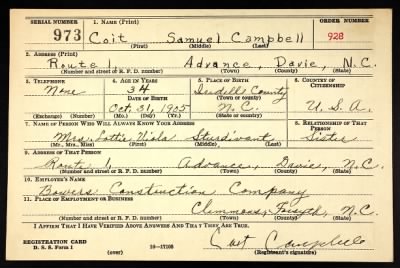 SERIAL NUMBER 1. NAME (Print) ORDER NUMBER
973 Coit Samuel Campbell 928
(First) (Middle) (Last)
2. ADDRESS (Print)
Route 1, Advance, Davie, N.C.
(Number and street or R. F. D. number) (Town) (County) (State)
3. TELEPHONE 4. AGE IN YEARS 5. PLACE OF BIRTH 6. COUNTRY OF CITIZENSHIP
None 34 Iredell County
DATE OF BIRTH (Town or county)
Oct. 31, 1905 N.C. U.S.A.
(Exchange) (Number) (Mo.) (Day) (Yr.) (State or country)
7. NAME OF PERSON WHO WILL ALWAYS KNOW YOUR ADDRESS 8. RELATIONSHIP OF THAT PERSON
Mrs. Lottie Viola Sturdivant Sister
(Mr., Mrs., Miss) (First) (Middle) (Last)
9. ADDRESS OF THAT PERSON
Route 1, Advance, Davie, N.C.
(Number and street or R. F. D. number) (Town) (County) (State)
10. EMPLOYER'S NAME
Bowers Construction Company
11. PLACE OF EMPLOYMENT OR BUSINESS
Clemmons, Forsyth, N.C.
(Number and street or R. F. D. number) (Town) (County) (State)
I AFFIRM THAT I HAVE VERIFIED ABOVE ANSWERS AND THAT THEY ARE TRUE.
REGISTRATION CARD
D. S. S. Form 1 (over) 16—17105 Coit Campbell
(Registrant's signature)